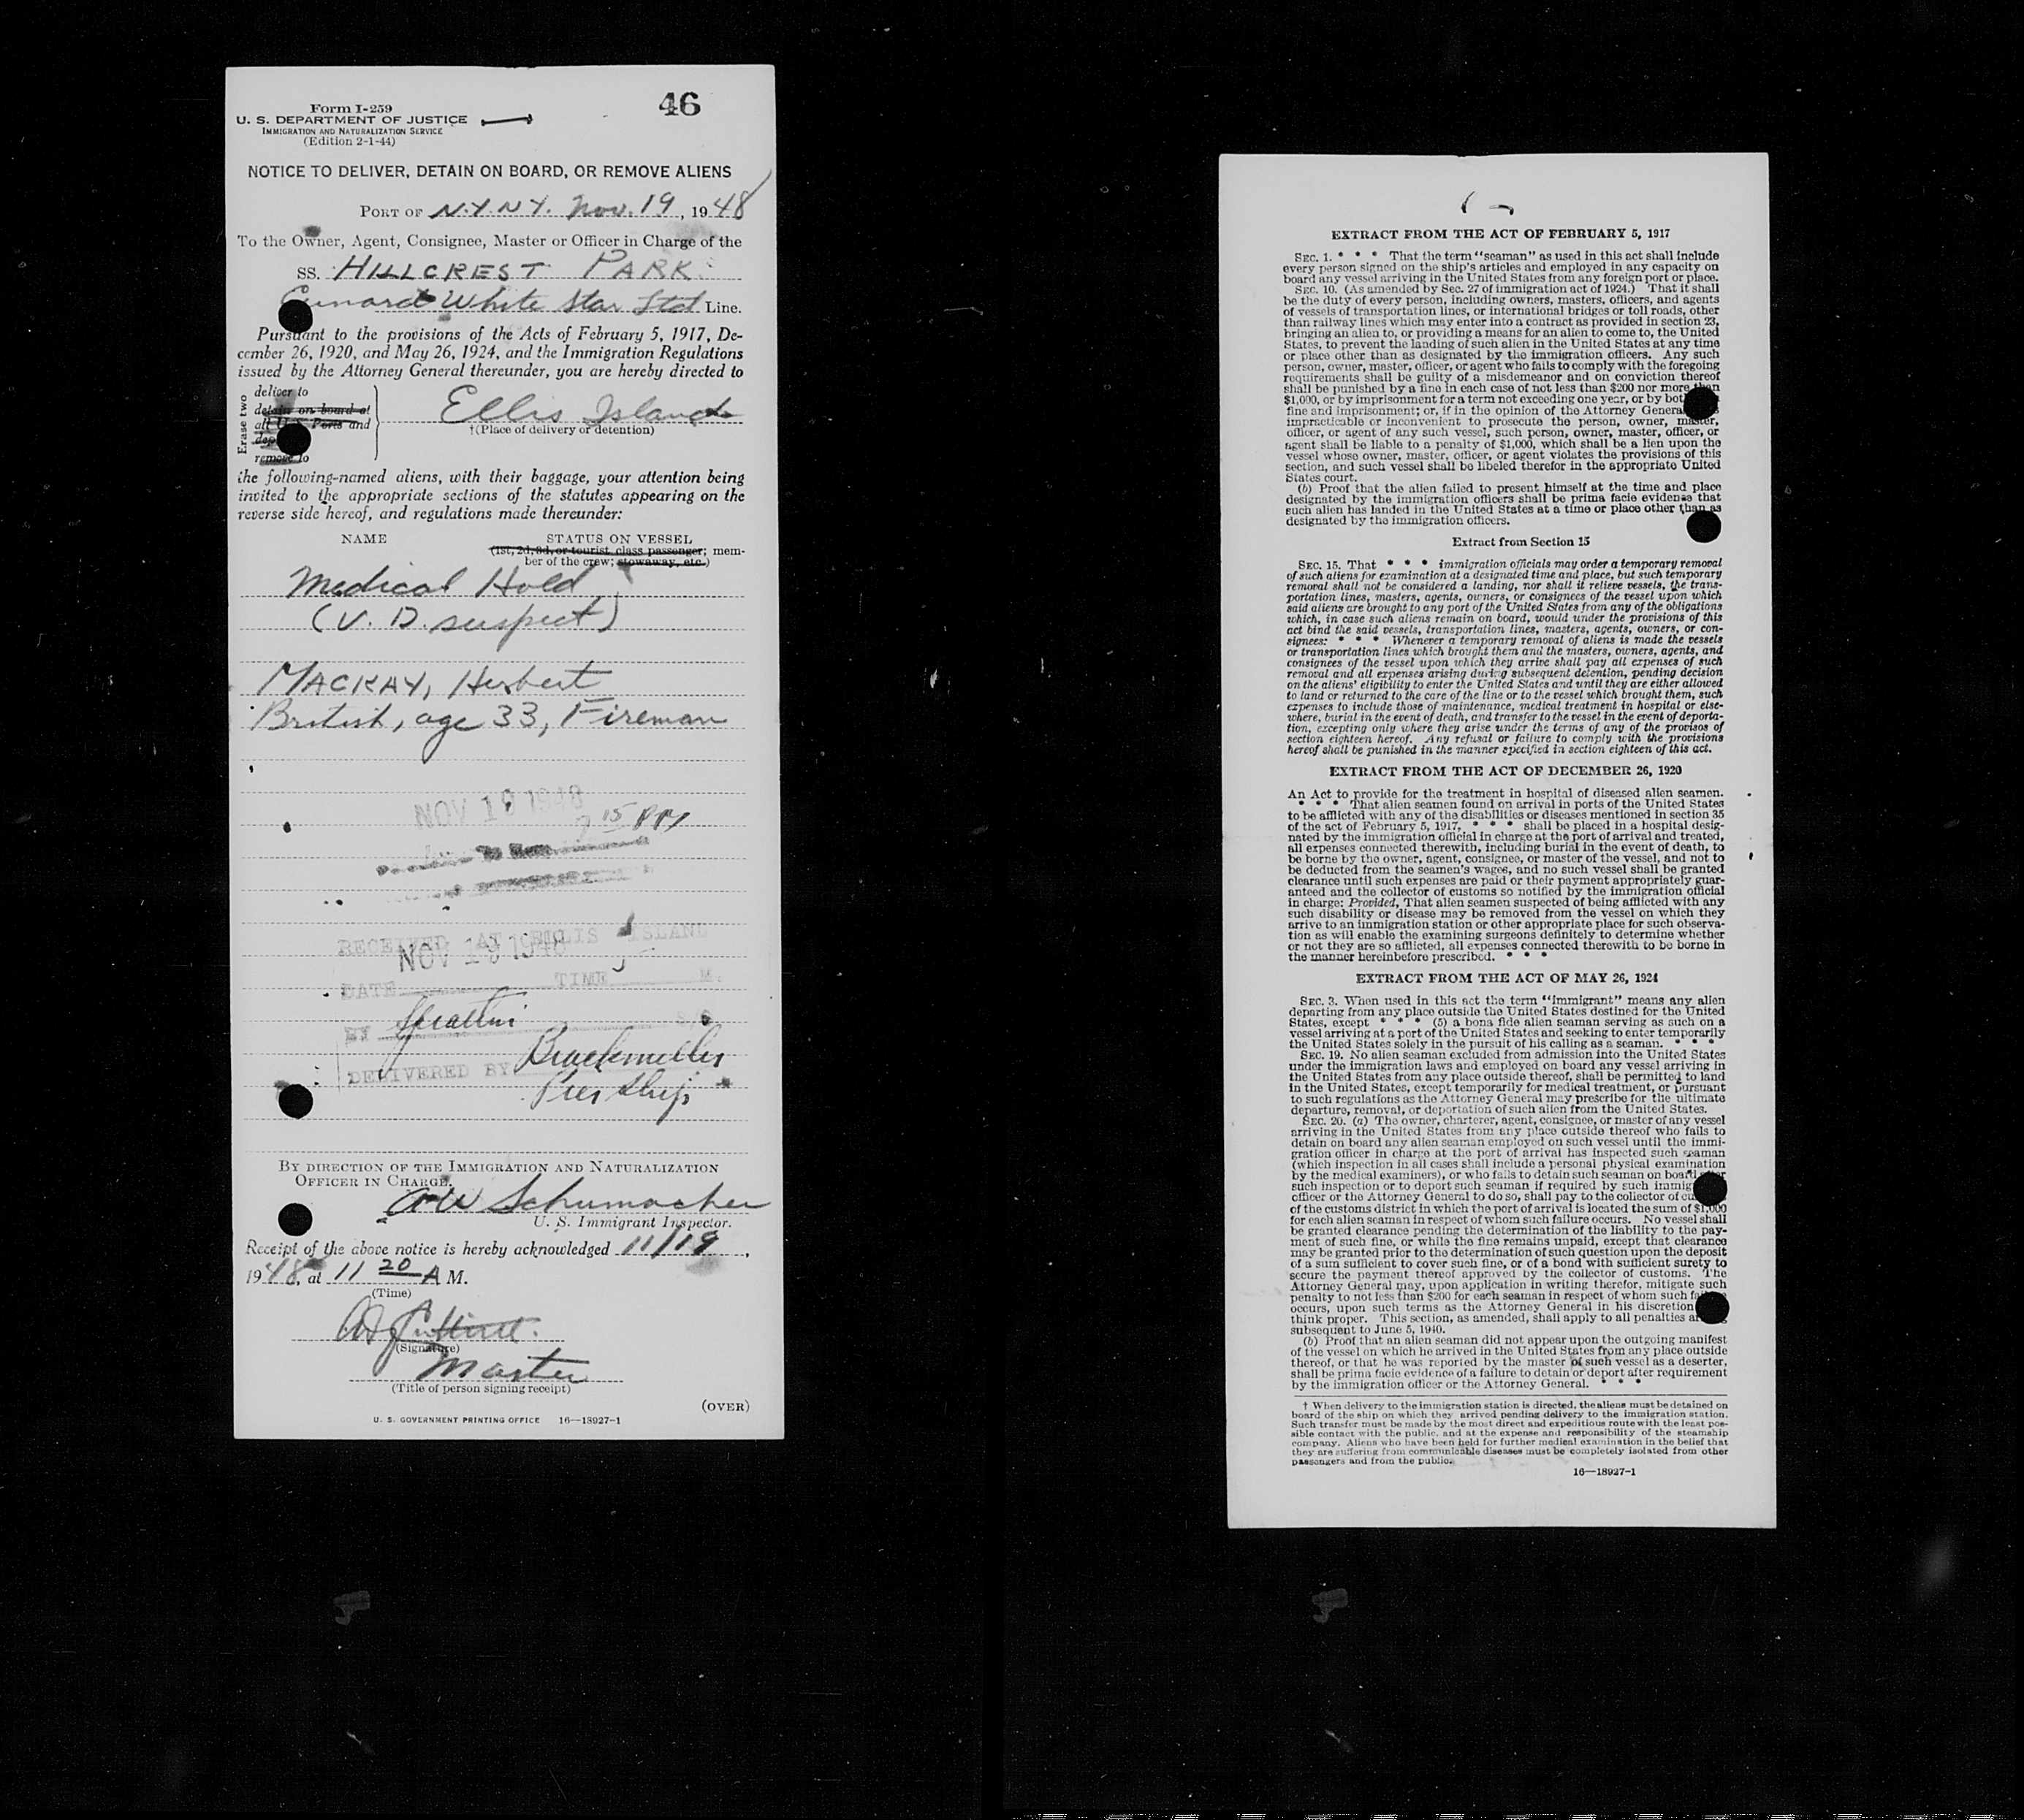 46
Form I-259
U. S. DEPARTMENT OF JUSTICE
IMMIGRATION AND NATURALIZATION SERVICE
(Edition 2-1-44)
NOTICE TO DELIVER, DETAIN ON BOARD, OR REMOVE ALIENS
PORT OF N.Y. N.Y. Nov. 19, 1948
To the Owner, Agent, Consignee, Master or Officer in Charge of the
SS. HILLCREST PARK
Cunard White Star Ltd Line.
Pursuant to the provisions of the Acts of February 5, 1917, De-
cember 26, 1920, and May 26, 1924, and the Immigration Regulations
issued by the Attorney General thereunder, you are hereby directed to
Erase two
deliver to
detain on board at
all U.S. Ports and
remove to
Ellis Island
†(Place of delivery or detention)
the following-named aliens, with their baggage, your attention being
invited to the appropriate sections of the statutes appearing on the
reverse side hereof, and regulations made thereunder:
NAME STATUS ON VESSEL
(1st, 2d, 3d, or tourist class passenger; mem-
ber of the crew; stowaway, etc.)
Medical Hold
(V. D. suspect)
MACKAY, Herbert
British, age 33, Fireman
NOV 19 1948
15 PM
RECEIVED AT ELLIS ISLAND
NOV 19 1948
DATE TIME M.
BY
DELIVERED BY
By DIRECTION OF THE IMMIGRATION AND NATURALIZATION
OFFICER IN CHARGE.
Schumacher
U. S. Immigrant Inspector.
Receipt of the above notice is hereby acknowledged 11/19,
1948, at 11 20 A M.
(Time)
(Signature)
Master
(Title of person signing receipt)
(OVER)
U. S. GOVERNMENT PRINTING OFFICE 16—18927-1
EXTRACT FROM THE ACT OF FEBRUARY 5, 1917
SEC. 1. * * * That the term "seaman" as used in this act shall include
every person signed on the ship's articles and employed in any capacity on
board any vessel arriving in the United States from any foreign port or place.
SEC. 10. (As amended by Sec. 27 of immigration act of 1924.) That it shall
be the duty of every person, including owners, masters, officers, and agents
of vessels of transportation lines, or international bridges or toll roads, other
than railway lines which may enter into a contract as provided in section 23,
bringing an alien to, or providing a means for an alien to come to, the United
States, to prevent the landing of such alien in the United States at any time
or place other than as designated by the immigration officers. Any such
person, owner, master, officer, or agent who fails to comply with the foregoing
requirements shall be guilty of a misdemeanor and on conviction thereof
shall be punished by a fine in each case of not less than $200 nor more than
$1,000, or by imprisonment for a term not exceeding one year, or by bot
fine and imprisonment; or, if in the opinion of the Attorney Genera
impracticable or inconvenient to prosecute the person, owner, master,
officer, or agent of any such vessel, such person, owner, master, officer, or
agent shall be liable to a penalty of $1,000, which shall be a lien upon the
vessel whose owner, master, officer, or agent violates the provisions of this
section, and such vessel shall be libeled therefor in the appropriate United
States court.
(b) Proof that the alien failed to present himself at the time and place
designated by the immigration officers shall be prima facie evidence that
such alien has landed in the United States at a time or place other than as
designated by the immigration officers.
Extract from Section 15
SEC. 15. That * * * immigration officials may order a temporary removal
of such aliens for examination at a designated time and place, but such temporary
removal shall not be considered a landing, nor shall it relieve vessels, the trans-
portation lines, masters, agents, owners, or consignees of the vessel upon which
said aliens are brought to any port of the United States from any of the obligations
which, in case such aliens remain on board, would under the provisions of this
act bind the said vessels, transportation lines, masters, agents, owners, or con-
signees: * * * Whenever a temporary removal of aliens is made the vessels
or transportation lines which brought them and the masters, owners, agents, and
consignees of the vessel upon which they arrive shall pay all expenses of such
removal and all expenses arising during subsequent detention, pending decision
on the aliens' eligibility to enter the United States and until they are either allowed
to land or returned to the care of the line or to the vessel which brought them, such
expenses to include those of maintenance, medical treatment in hospital or else-
where, burial in the event of death, and transfer to the vessel in the event of deporta-
tion, excepting only where they arise under the terms of any of the provisos of
section eighteen hereof. Any refusal or failure to comply with the provisions
hereof shall be punished in the manner specified in section eighteen of this act.
EXTRACT FROM THE ACT OF DECEMBER 26, 1920
An Act to provide for the treatment in hospital of diseased alien seamen.
* * * That alien seamen found on arrival in ports of the United States
to be afflicted with any of the disabilities or diseases mentioned in section 35
of the act of February 5, 1917, * * * shall be placed in a hospital desig-
nated by the immigration official in charge at the port of arrival and treated,
all expenses connected therewith, including burial in the event of death, to
be borne by the owner, agent, consignee, or master of the vessel, and not to
be deducted from the seamen's wages, and no such vessel shall be granted
clearance until such expenses are paid or their payment appropriately guar-
anteed and the collector of customs so notified by the immigration official
in charge: Provided, That alien seamen suspected of being afflicted with any
such disability or disease may be removed from the vessel on which they
arrive to an immigration station or other appropriate place for such observa-
tion as will enable the examining surgeons definitely to determine whether
or not they are so afflicted, all expenses connected therewith to be borne in
the manner hereinbefore prescribed. * * *
EXTRACT FROM THE ACT OF MAY 26, 1924
SEC. 3. When used in this act the term "immigrant" means any alien
departing from any place outside the United States destined for the United
States, except * * * (5) a bona fide alien seaman serving as such on a
vessel arriving at a port of the United States and seeking to enter temporarily
the United States solely in the pursuit of his calling as a seaman. * * *
SEC. 19. No alien seaman excluded from admission into the United States
under the immigration laws and employed on board any vessel arriving in
the United States from any place outside thereof, shall be permitted to land
in the United States, except temporarily for medical treatment, or pursuant
to such regulations as the Attorney General may prescribe for the ultimate
departure, removal, or deportation of such alien from the United States.
SEC. 20. (a) The owner, charterer, agent, consignee, or master of any vessel
arriving in the United States from any place outside thereof who fails to
detain on board any alien seaman employed on such vessel until the immi-
gration officer in charge at the port of arrival has inspected such seaman
(which inspection in all cases shall include a personal physical examination
by the medical examiners), or who fails to detain such seaman on board after
such inspection or to deport such seaman if required by such immig
officer or the Attorney General to do so, shall pay to the collector of cu
of the customs district in which the port of arrival is located the sum of $1,000
for each alien seaman in respect of whom such failure occurs. No vessel shall
be granted clearance pending the determination of the liability to the pay-
ment of such fine, or while the fine remains unpaid, except that clearance
may be granted prior to the determination of such question upon the deposit
of a sum sufficient to cover such fine, or of a bond with sufficient surety to
secure the payment thereof approved by the collector of customs. The
Attorney General may, upon application in writing therefor, mitigate such
penalty to not less than $200 for each seaman in respect of whom such fa
occurs, upon such terms as the Attorney General in his discretion
think proper. This section, as amended, shall apply to all penalties a
subsequent to June 5, 1940.
(b) Proof that an alien seaman did not appear upon the outgoing manifest
of the vessel on which he arrived in the United States from any place outside
thereof, or that he was reported by the master of such vessel as a deserter,
shall be prima facie evidence of a failure to detain or deport after requirement
by the immigration officer or the Attorney General. * * *
† When delivery to the immigration station is directed, the aliens must be detained on
board of the ship on which they arrived pending delivery to the immigration station.
Such transfer must be made by the most direct and expeditious route with the least pos-
sible contact with the public, and at the expense and responsibility of the steamship
company. Aliens who have been held for further medical examination in the belief that
they are suffering from communicable diseases must be completely isolated from other
passengers and from the public.
16—18927-1